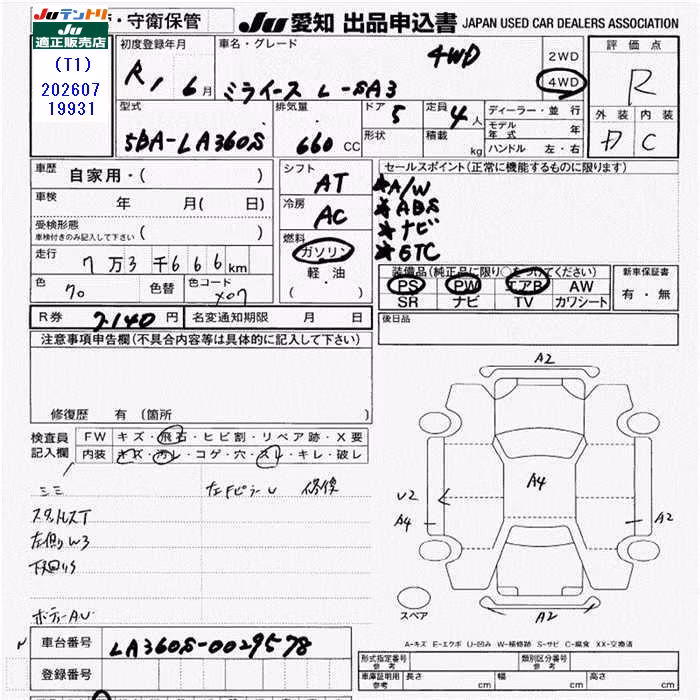 Juテントリ
Ju 適正販売店
(T1)
202607
19931
・守衛保管
Ju 愛知 出品申込書 JAPAN USED CAR DEALERS ASSOCIATION
初度登録年月
R1 6月
車名・グレード
ミライース L-SA3 4WD
2WD
4WD
評価点
R
外装 内装
C
型式
5BA-LA360S
排気量
660 CC
ドア 5
定員 4人
形状
積載 kg
ディーラー・並行
モデル年式 年
ハンドル 左・右
車歴 自家用・( )
車検 年 月( 日)
受検形態
車検付きのみ記入して下さい ( )
走行 7万3千666km
色 クロ 色替 色コード X07
R券 7140円 名変通知期限 月 日
シフト AT
冷房 AC
燃料
ガソリン
軽・油
( ・ )
セールスポイント (正常に機能するものに限ります)
★A/W
★ABS
★ナビ
★ETC
装備品 (純正品に限り○をつけてください)
PS PW エアB AW
SR ナビ TV カワシート
新車保証書
有・無
後日品
注意事項申告欄 (不具合内容等は具体的に記入して下さい)
修復歴 有 (箇所 )
検査員記入欄
FW キズ・飛石・ヒビ割・リペア跡・X要
内装 キズ・汚レ・コゲ・穴・スレ・キレ・破レ
ミミ
左Fピラー U 修復
スタッドレスT
左側り W3
下回りS
ボデーAU
A2
A4
U2
A4
A2
A2
スペア
A-キズ E-エクボ U-凹み W-補修跡 S-サビ C-腐食 XX-交換済
車台番号 LA360S-0029578
登録番号
形式指定番号 参考
類別区分番号 参考
車庫証明用 参考 長さ cm 幅 cm 高さ cm